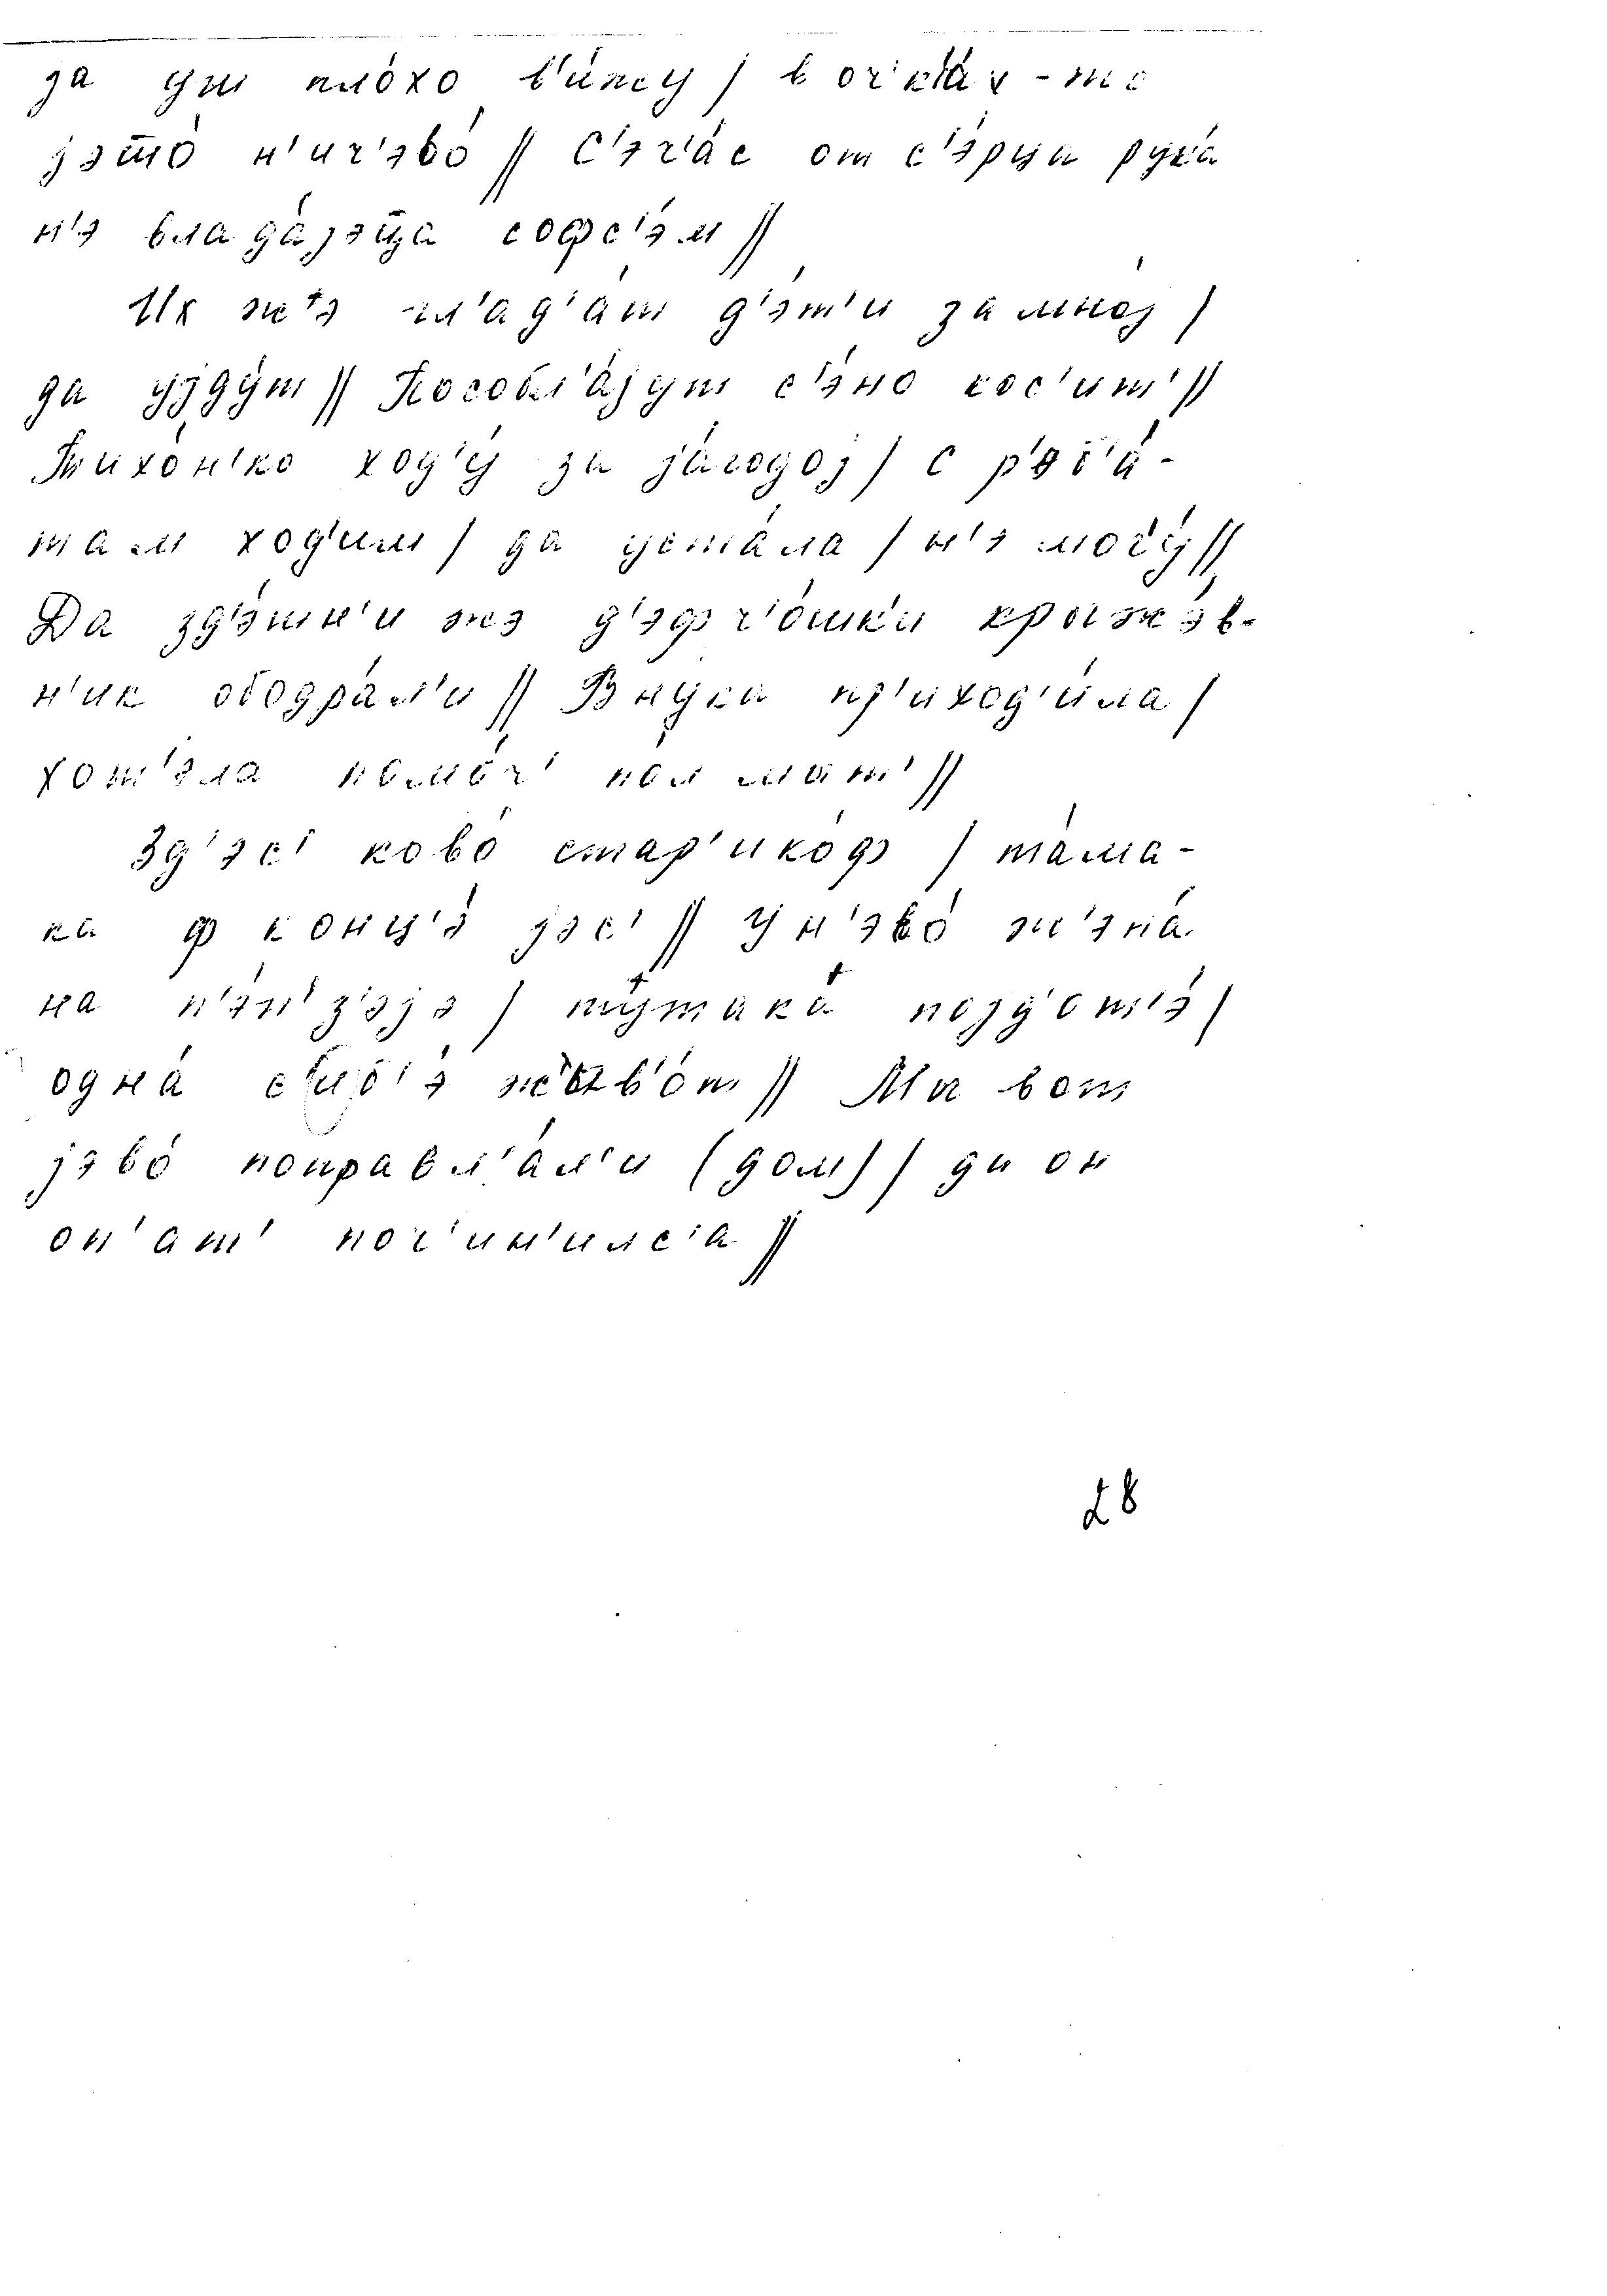 да уш пло́хо в'и́жу / в оч'к'а́х - то
јэто́ н'ич'эво́ // С'эч'а́с от с'э́рца рука́
н'э влада́јэца софс'э́м //
Их ж'э гл'ад'а́т д'э́т'и за мно́ј /
да ујду́т // Пособл'а́јут с'э́но кос'ит' //
Тихо́н'ко ход'у́ за ја́годој / с р'эб'а́-
там ход'им / да уста́ла / н'э моч'у́ //
Да зд'э́шн'и жэ д'эфч'о́шк'и крыжэ́в-
н'ик ободра́л'и // Внука пр'иход'и́ла /
хот'э́ла помо́ч' пол мыт' //
Зд'эс' ково́ стар'ико́ф / та́ма-
ка ф конц'э́ јэс' // У н'эво́ ж'эна́
на п'э́н'з'эјэ / ту́така́ појд'от'э́ /
одна́ с'иб'э́ жыв'о́т // Мы вот
јэво́ поправл'а́л'и (дом) / да он
оп'ат' поч'ин'илс'а //
28